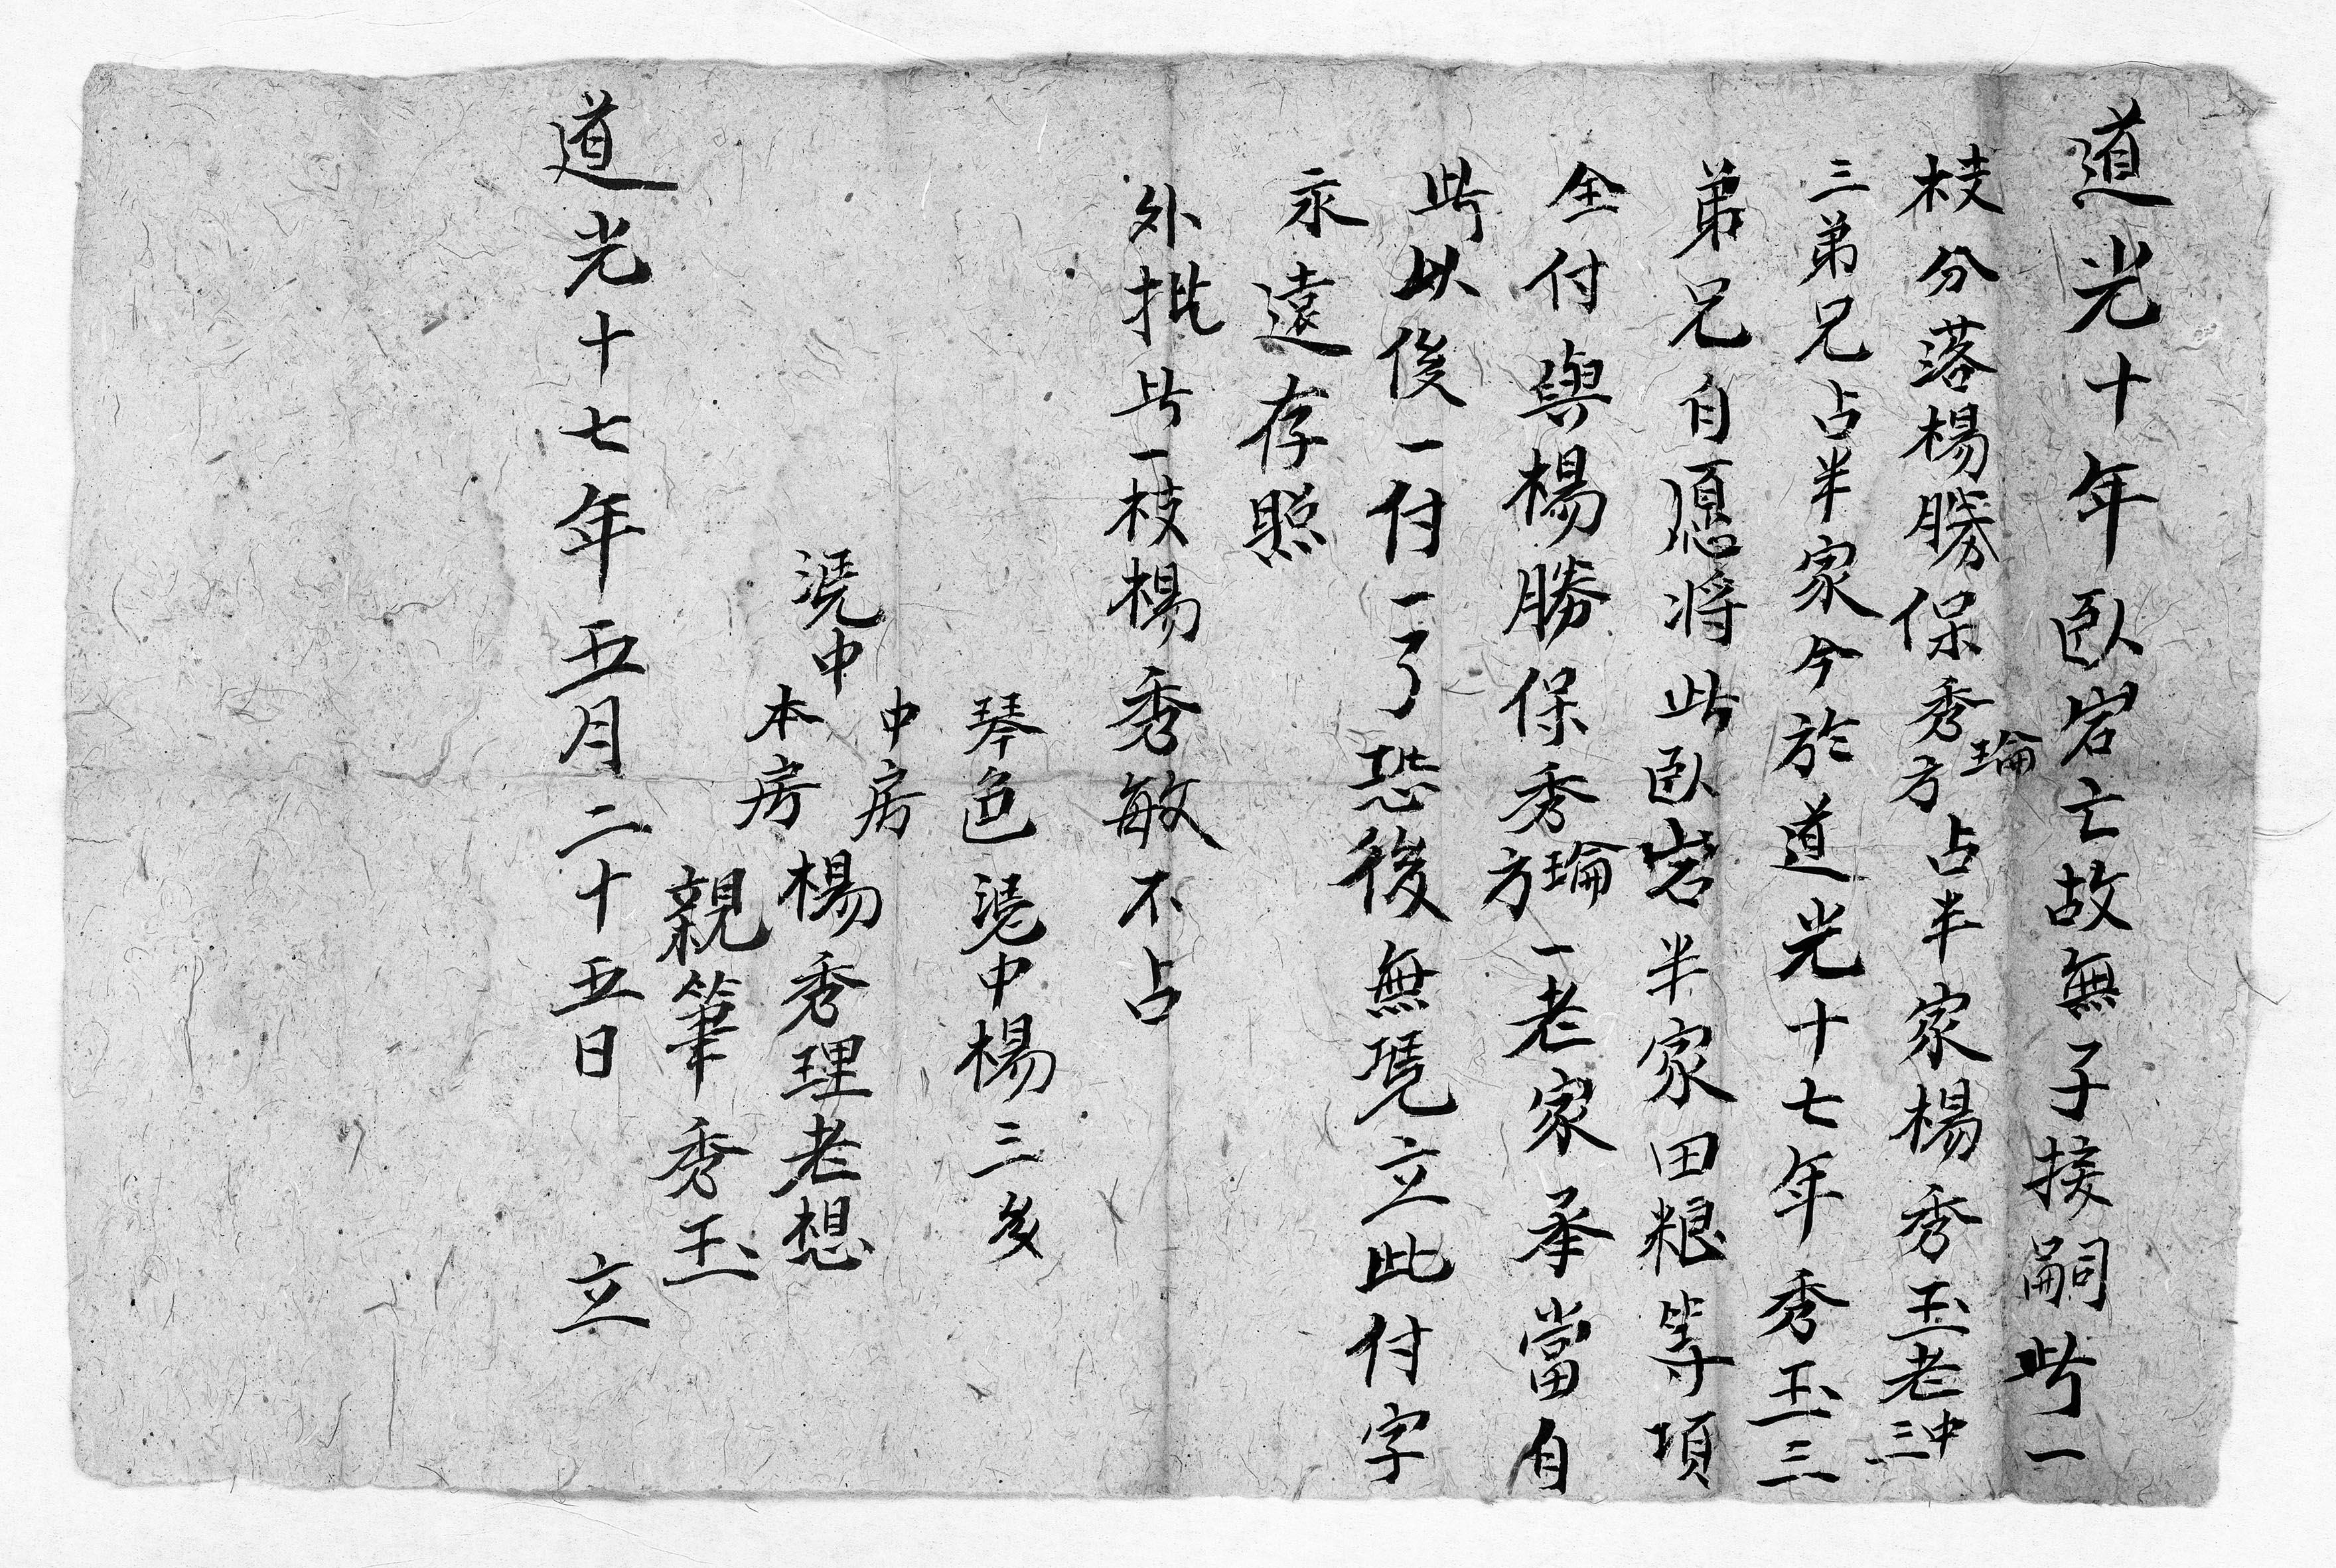 道光十年臥岩亡故無子接嗣此一
枝分落楊勝保秀瑜方占半家楊秀玉老三中
三弟兄占半家今於道光十七年秀玉三
弟兄自愿將此臥岩半家田粮等項
全付與楊勝保秀瑜方一老家承當自
此以後一付一了恐後無凴立此付字
永遠存照
外批此一枝楊秀敏不占
琴色凴中楊三
凴中
中房
本房
楊秀理老想
親筆秀玉
道光十七年五月二十五日 立